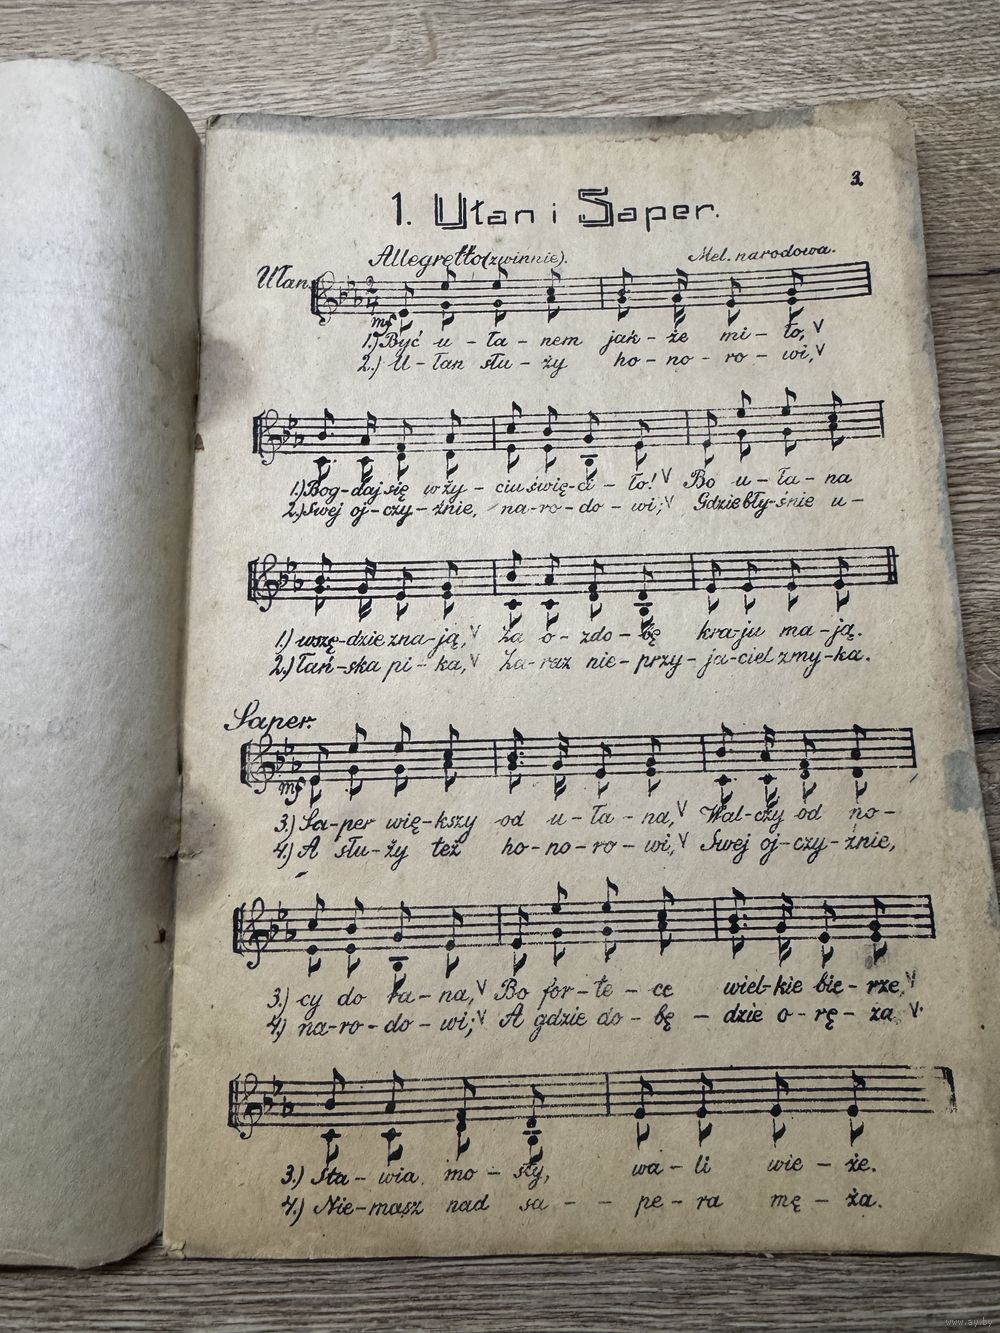 3.
1. Ułan i Saper.
Allegretto (zwinnie).
Mel. narodowa.
Ułan.
mf
1.) Być u - ła - nem jak - że mi - ło, V
2.) U - łan słu - ży ho - no - ro - wi, V
1.) Bog-daj się w ży - ciu świę-ci - ło! V Bo u - ła - na
2.) Swej oj-czy-źnie, na-ro-do - wi; V Gdzie bły-śnie u -
1.) wszę-dzie zna-ją, V Za o - zdo - bę kra-ju ma-ją.
2.) łań-ska pi - ka, V Za-raz nie-przy-ja-ciel zmy-ka.
Saper.
mf
3.) Sa-per wię-kszy od u - ła - na, V Wal-czy od no -
4.) A słu-ży też ho-no-ro-wi, V Swej oj-czy-źnie,
3.) cy do ra - na, V Bo for - te - ce wiel-kie bie - rze, V
4.) na-ro-do - wi; V A gdzie do - bę - dzie o - rę - ża V
3.) Sta - wia mo - sty, wa - li wie - że.
4.) Nie-masz nad sa - - pe - ra mę - ża.
www.ay.by